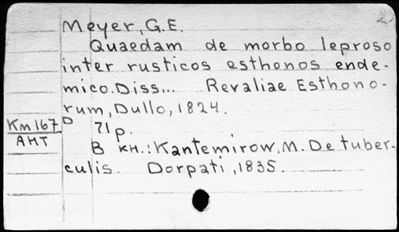 2
Meyer, G.E.
Quaedam de morbo leproso
inter rusticos esthonos ende-
mico. Diss... Revaliae Esthono-
rum, Dullo, 1824.
Km167 D 71 p.
АНТ В кн.: Kantemirow, M. De tuber-
culis. Dorpati, 1835.